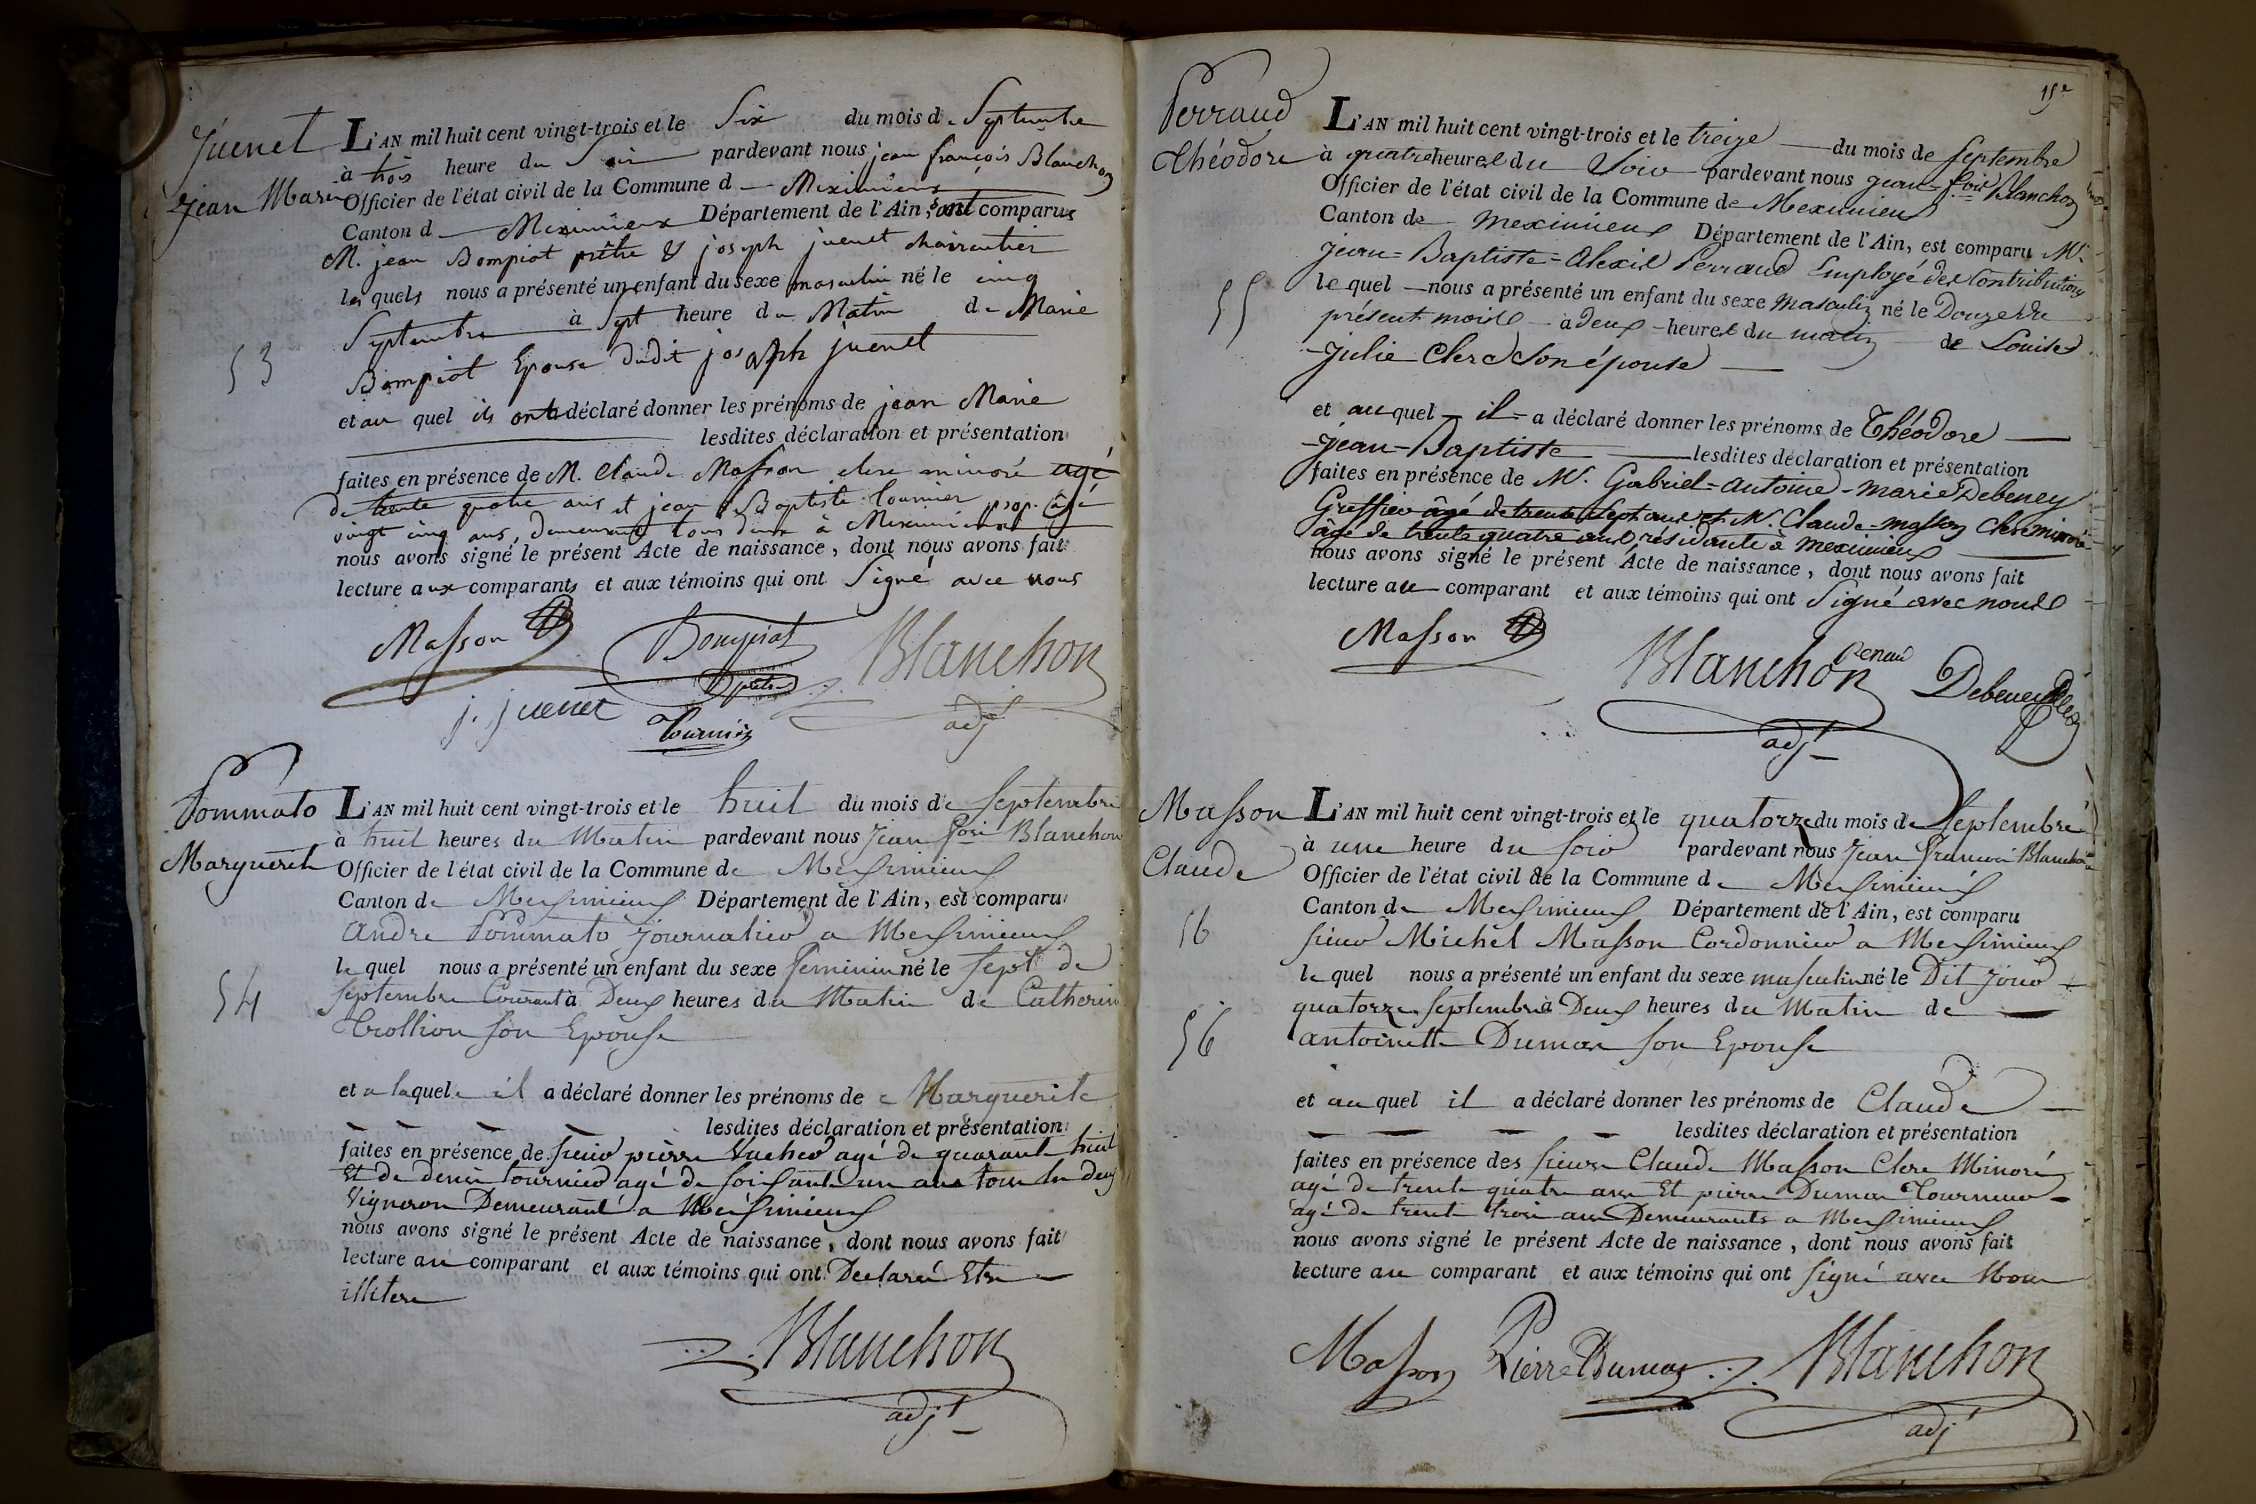 Juenet
Jean Marie
53
L'AN mil huit cent vingt-trois et le Six du mois de Septembre
à trois heure du Soir pardevant nous jean françois Blanchon
Officier de l'état civil de la Commune d Meximieux
Canton d Meximieux Département de l'Ain, sont comparus
M. jean Bompiat prêtre & joseph juenet charcutier
lesquels nous a présenté un enfant du sexe masculin né le cinq
Septembre à Sept heure du Matin de Marie
Bompiat Epouse dudit joseph juenet
et au quel ils ont déclaré donner les prénoms de jean Marie
lesdites déclaration et présentation
faites en présence de M. Claude Masson clerc minoré agé
de trente quatre ans et jean Baptiste Tournier prop. âgé
vingt cinq ans, demeurant tous deux à Meximieux
nous avons signé le présent Acte de naissance, dont nous avons fait
lecture aux comparants et aux témoins qui ont Signé avec nous
Masson Bompiat Blanchon
ptre
j. juenet Tournier adjt
Pommato
Marguerite
54
L'AN mil huit cent vingt-trois et le huit du mois de Septembre
à huit heures du Matin pardevant nous Jean fois Blanchon
Officier de l'état civil de la Commune de Meximieux
Canton de Meximieux Département de l'Ain, est comparu
andre Pommato journalier a Meximieux
le quel nous a présenté un enfant du sexe feminin né le sept de
septembre Courant à Deux heures du Matin de Catherine
Trollion son Epouse
et a laquele il a déclaré donner les prénoms de Marguerite
lesdites déclaration et présentation
faites en présence de sieur pierre Vacher agé de quarante huit
Et de denis tournier agé de soixante un ans tous les deux
Vigneron Demeurant a Meximieux
nous avons signé le présent Acte de naissance, dont nous avons fait
lecture au comparant et aux témoins qui ont Declaré Etre
illitere
Blanchon
adjt
15e
Perraud
Théodore
55
L'AN mil huit cent vingt-trois et le treize du mois de Septembre
à quatre heures du Soir pardevant nous jean-fois Blanchon
Officier de l'état civil de la Commune de Meximieux
Canton de Meximieux Département de l'Ain, est comparu Mr.
jean-Baptiste-Alexis Perraud Employé des Contributions
le quel nous a présenté un enfant du sexe Masculin né le Douze du
présent mois à deux heures du matin de Louise
julie Clerc Son épouse
et au quel il a déclaré donner les prénoms de Théodore
jean-Baptiste lesdites déclaration et présentation
faites en présence de Mr. Gabriel-antoine-marie Debeney
Greffier âgé de trente sept ans et Mr. Claude-masson Clerc minoré
âgé de trente quatre ans residants à meximieux
nous avons signé le présent Acte de naissance, dont nous avons fait
lecture au comparant et aux témoins qui ont Signé avec nous
Masson Blanchon Debeney
adjt
Masson
Claude
56
56
L'AN mil huit cent vingt-trois et le quatorze du mois de Septembre
à une heure du soir pardevant nous Jean francois Blanchon
Officier de l'état civil de la Commune de Meximieux
Canton de Meximieux Département de l'Ain, est comparu
sieur Michel Masson Cordonnier a Meximieux
le quel nous a présenté un enfant du sexe masculin né le Dit jour
quatorze septembre à Deux heures du Matin de
antoinette Dumas son Epouse
et au quel il a déclaré donner les prénoms de Claude
lesdites déclaration et présentation
faites en présence des sieurs Claude Masson Clerc Minoré
agé de trente quatre ans Et pierre Dumas Tourneur
agé de trente trois ans Demeurants a Meximieux
nous avons signé le présent Acte de naissance, dont nous avons fait
lecture au comparant et aux témoins qui ont signé avec Nous
Masson Pierre Dumas Blanchon
adjt